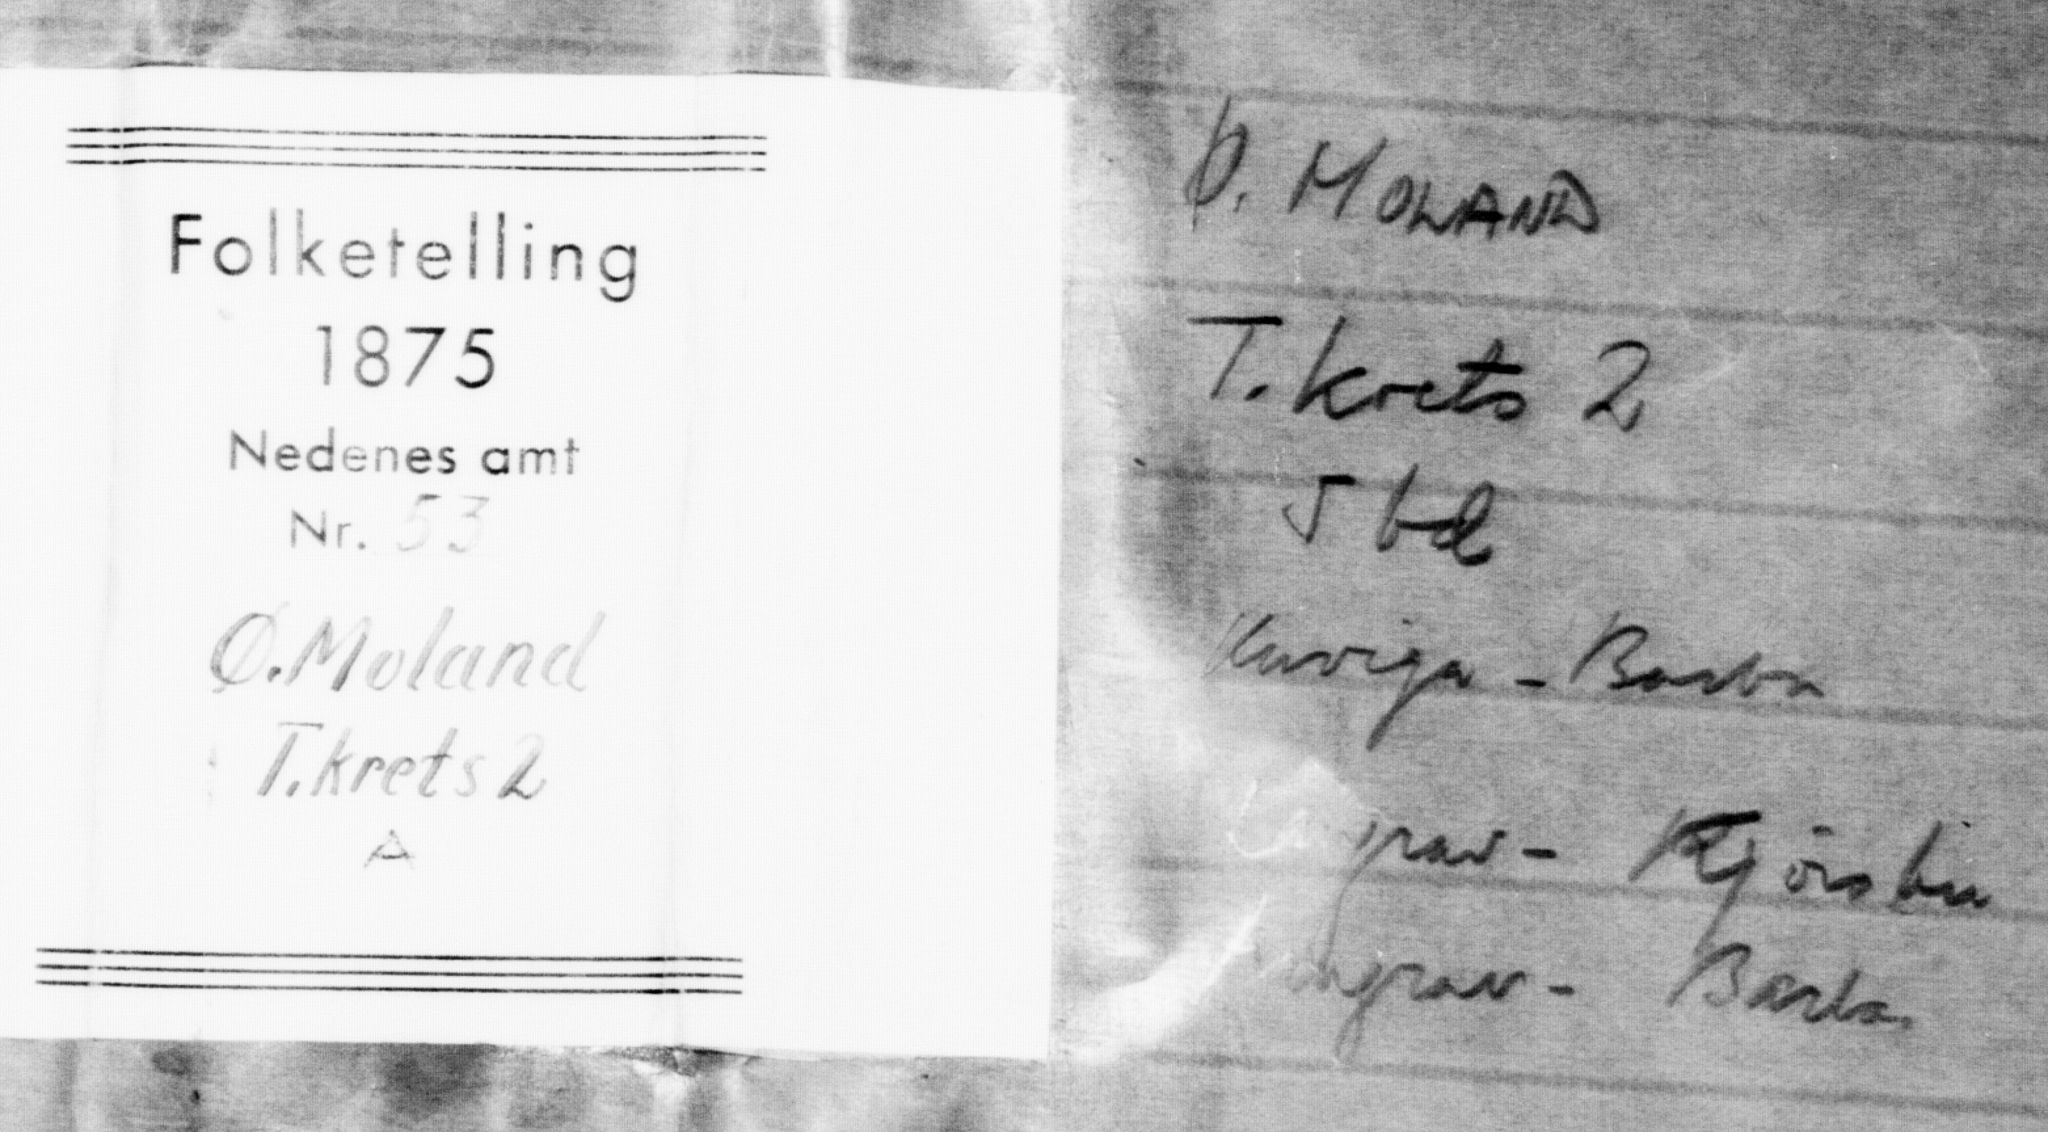 Folketelling
1875
Nedenes amt
Nr. 53
Ø. Moland
T. krets 2
A
Ø. MOLAND
T. krets 2
5 bd
Kuviga - Barbu
- Kjörsbu
- Barbu